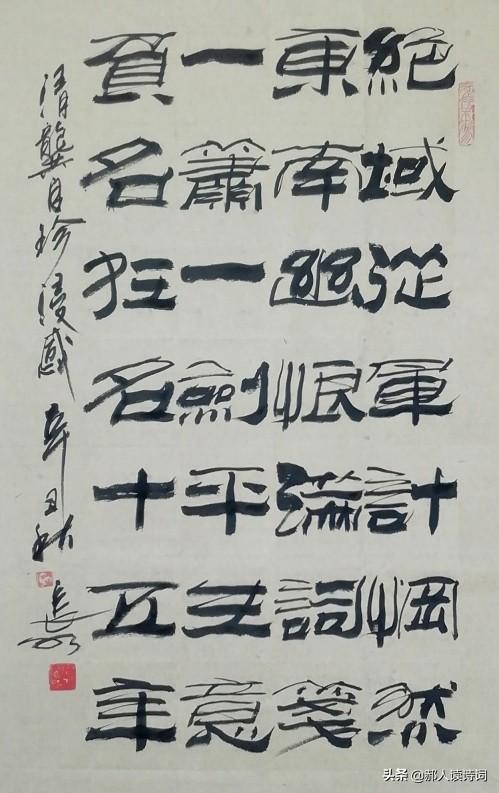 絶域從軍計惘然
東南幽恨滿詞箋
一簫一劍平生意
負名狂名十五年
清龔自珍漫感 辛丑秋
头条 @郝人读诗词